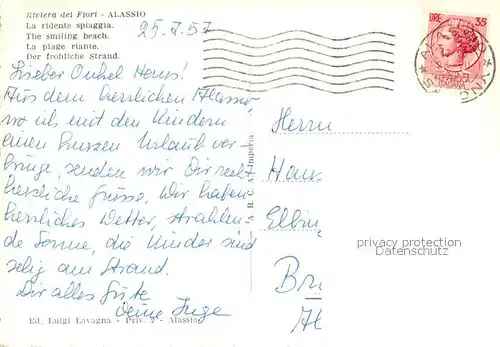 Riviera dei Fiori - ALASSIO
La ridente spiaggia.
The smiling beach.
La plage riante.
Der fröhliche Strand.
25.7.57
LIRE 35
REPUBBLICA
ITALIANA
Lieber Onkel Hans!
Aus dem herrlichen Alassio,
wo ich mit den Kindern
einen kurzen Urlaub ver-
bringe, senden wir Dir recht
herzliche Grüsse. Wir haben
herrliches Wetter, strahlen-
de Sonne, die Kinder sind
selig am Strand.
Dir alles Gute
Deine Inge
A. R. C. A. - Imperia
Herrn
Elbin
Br
privacy protection
Datenschutz
Ed. Luigi Lavagna - Priv. - Alassio